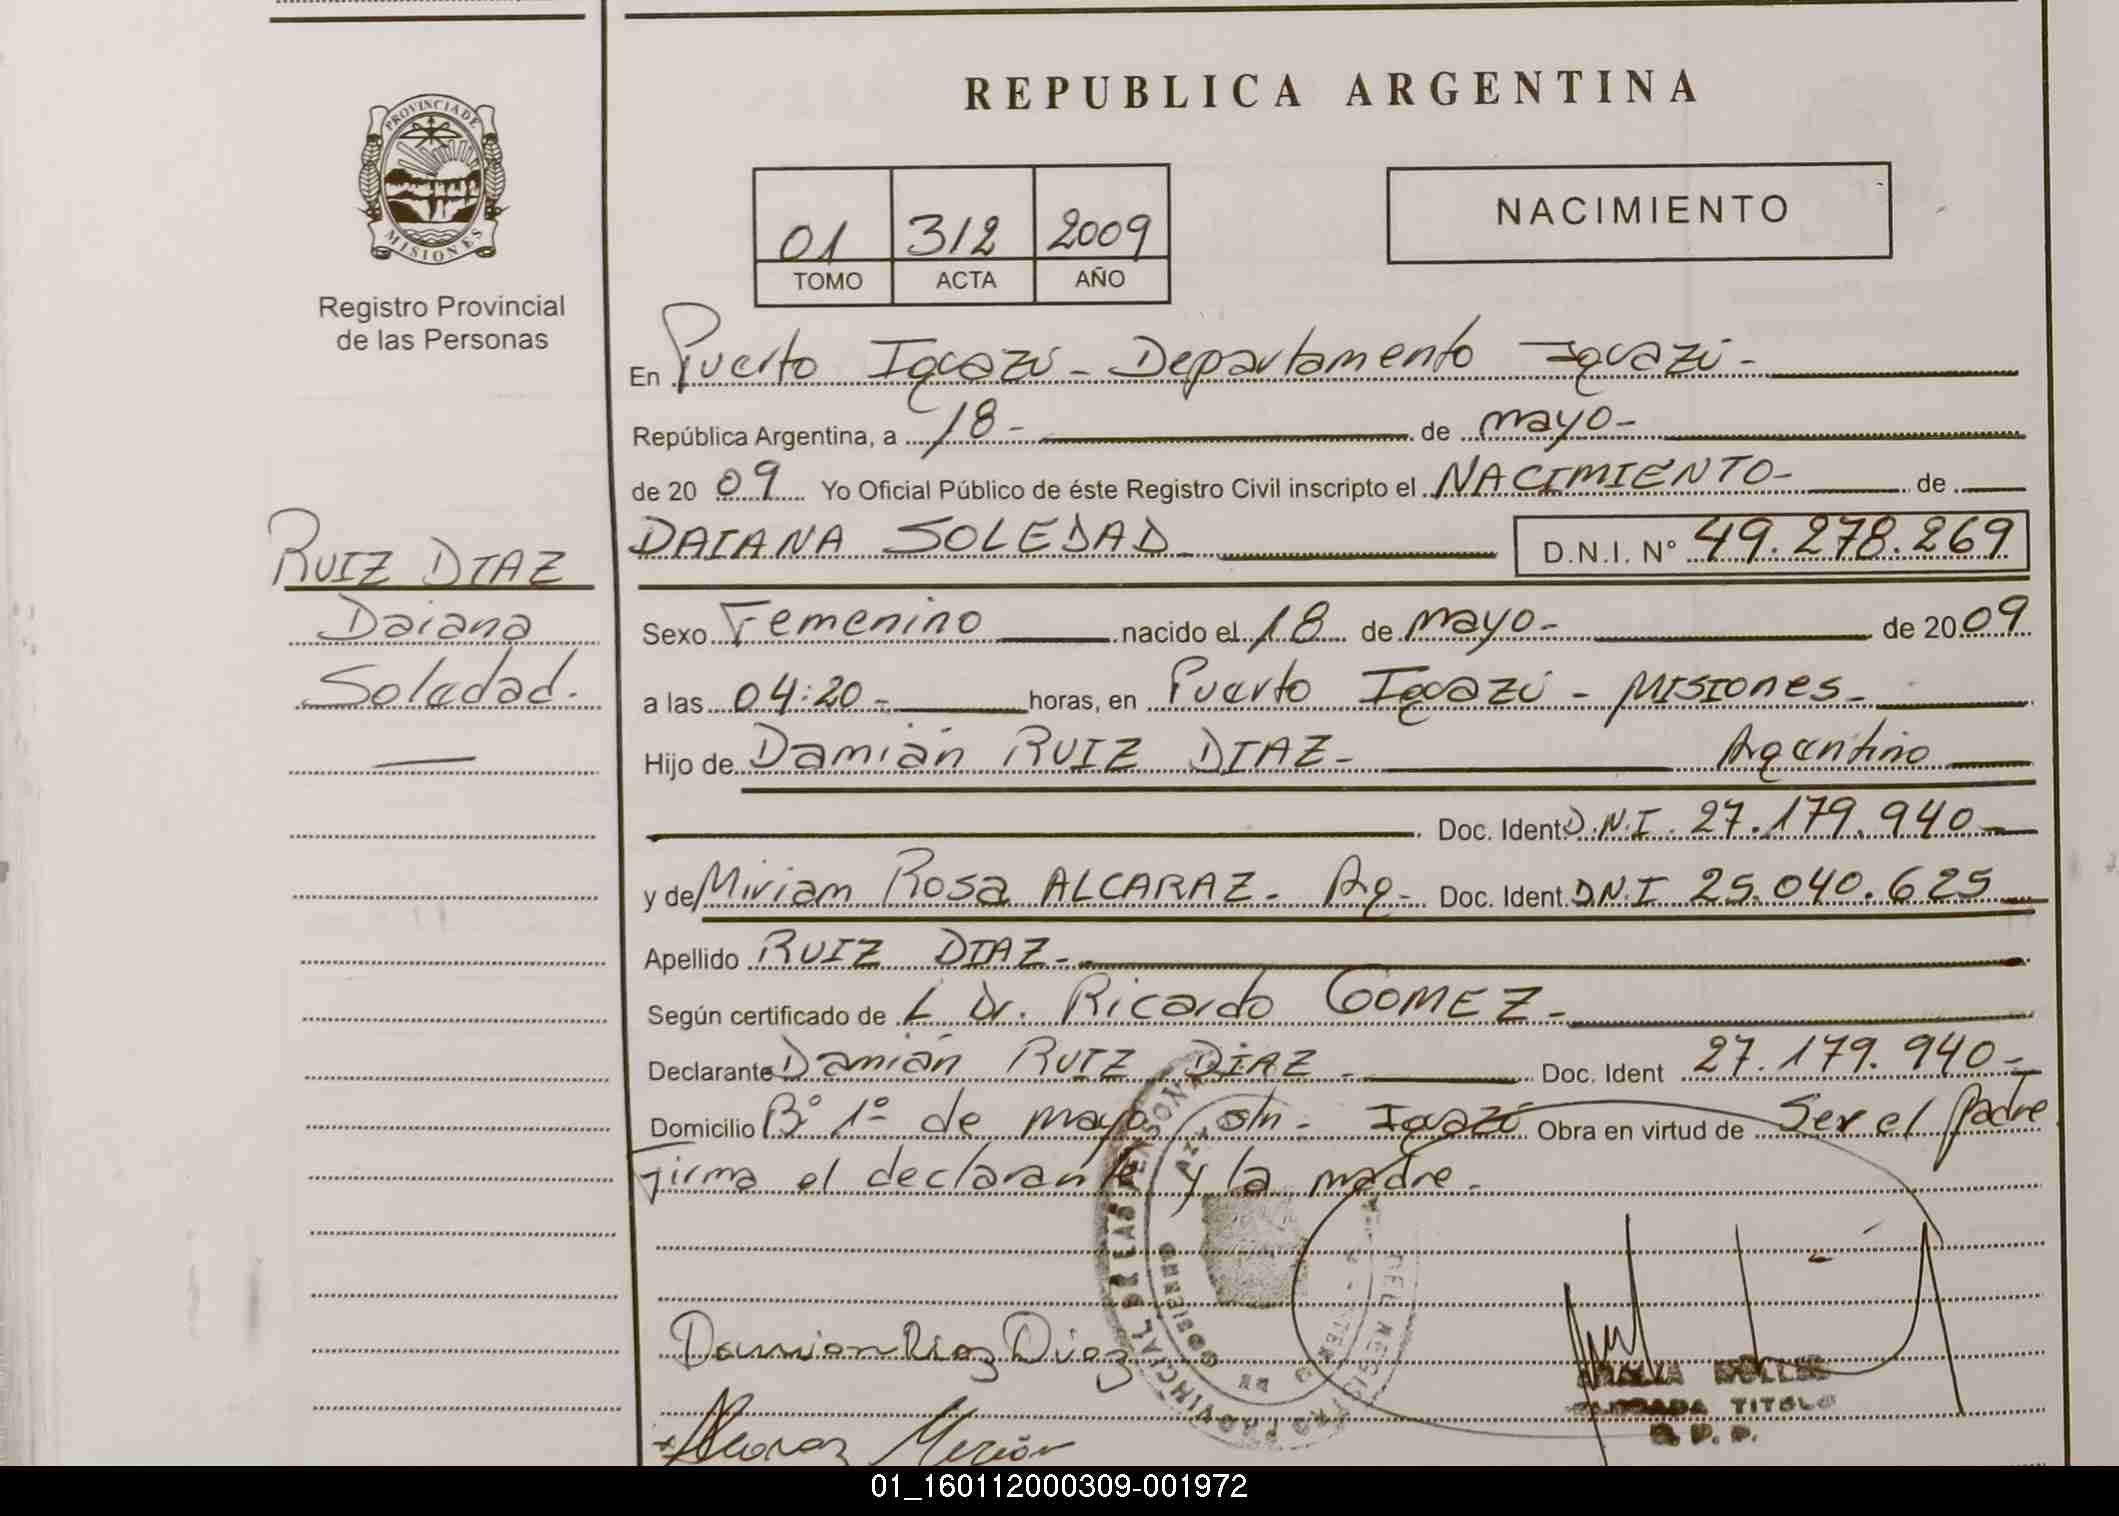 REPUBLICA ARGENTINA
PROVINCIA DE MISIONES
Registro Provincial
de las Personas
01 312 2009
TOMO ACTA AÑO
NACIMIENTO
En Puerto Iguazú - Departamento Iguazú -
República Argentina, a 18 - de mayo -
de 2009 Yo Oficial Público de éste Registro Civil inscripto el NACIMIENTO - de
DAIANA SOLEDAD - D.N.I. N° 49.278.269
RUIZ DIAZ
Daiana
Soledad.
Sexo Femenino nacido el 18 de mayo - de 2009
a las 04:20 - horas, en Puerto Iguazú - MISIONES -
Hijo de Damián RUIZ DIAZ - Argentino
Doc. Ident D.N.I. 27.179.940 -
y de Miriam Rosa ALCARAZ - Ag - Doc. Ident. D.N.I 25.040.625
Apellido RUIZ DIAZ -
Según certificado de L Dr. Ricardo GOMEZ -
Declarante Damián RUIZ DIAZ - Doc. Ident 27.179.940 -
Domicilio B° 1º de mayo s/n - Iguazú Obra en virtud de Ser el padre
Firma el declarante y la madre -
REGISTRO PROVINCIAL DE LAS PERSONAS
01_160112000309-001972